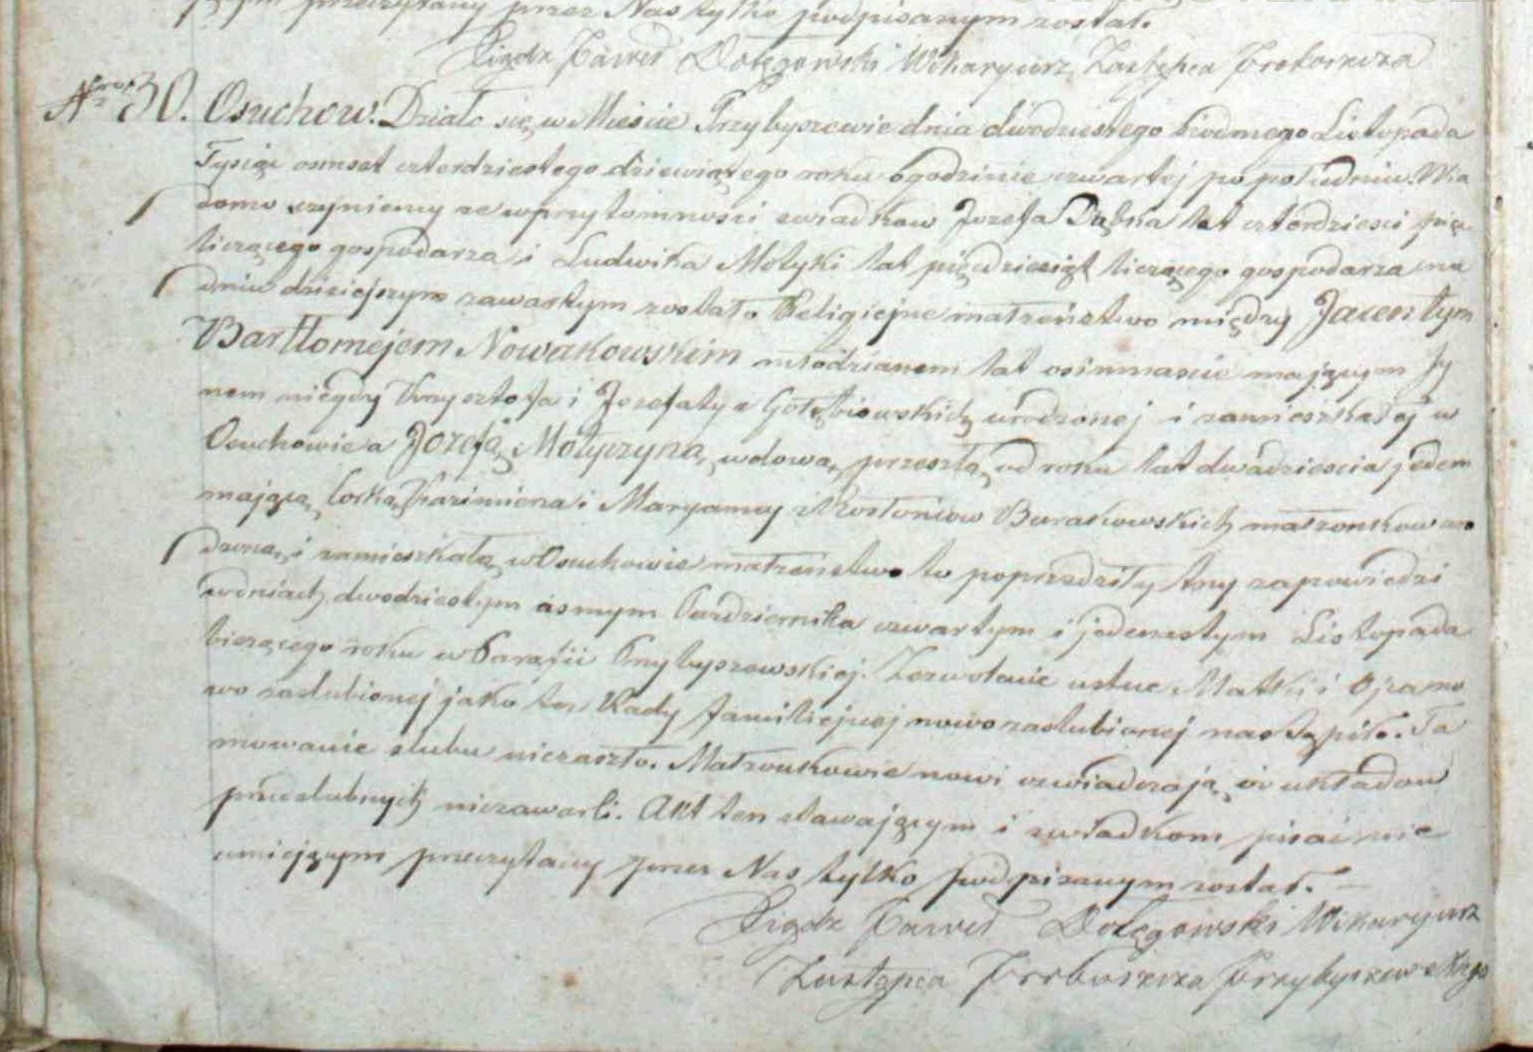 przeczytany przez Nas tylko podpisanym został.
Xiądz Paweł Dołęgowski Wikaryusz Zastępca Proboszcza
Nro 30. Osuchow. Działo się w Mieście Przybyszewie dnia dwudziestego siodmego Listopada
Tysiąc osmset czterdziestego dziewiątego roku o godzinie czwartej po południu. Wia
domo czyniemy ze w przytomnosci swiadkow Jozefa Dąbka lat czterdziesci pięc
liczącego gospodarza i Ludwika Motyki lat pięcdziesiąt liczącego gospodarza na
dniu dzisiejszym zawartym zostało Religiejne małżeństwo między Jacentym
Bartłomejem Nowakowskim młodzianem lat osimnascie mającym Sy
nem niegdy Krysztofa i Jozefaty z Gołębiowskich urodzonej i zamieszkałej w
Osuchowie a Jozefą Motyczyną wdową przeszłą od roku lat dwadziescia jeden
mającą Corką Kazimierza i Maryanny z Kostoniow Burakowskich małzonkow uro
dzoną i zamieszkałą w Osuchowie małzenstwo to poprzedziły trzy zapowiedzi
w dniach dwodziestym osmym Pazdziernika czwartym i jedenastym Listopada
bieżącego roku w Parafii Przybyszewskiej. Zezwolenie ustne Matki i Ojca no
wo zaslubionej jako tez Rady familiejnej nowo zaslubionej nastąpiło. Ta
mowanie slubu niezaszło. Małzonkowie nowi oswiadczają iż układow
przedslubnych niezawarli. Akt ten stawającym i swiadkom pisać nie
umiejącym przeczytany przez Nas tylko podpisanym został.
Xiądz Paweł Dołęgowski Wikaryusz
Zastępca Proboszcza Przybyszewskiego